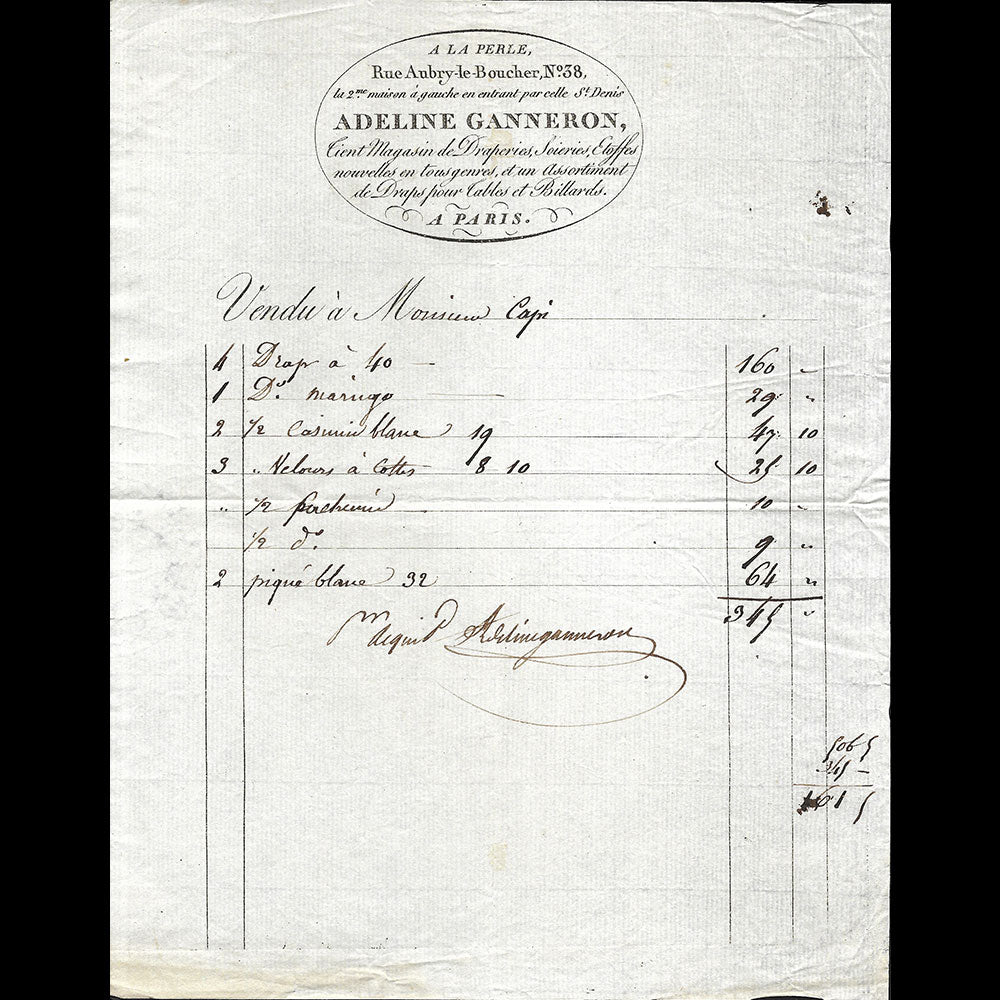 A LA PERLE,
Rue Aubry-le-Boucher, Nº 38,
la 2.me maison à gauche en entrant par celle St Denis
ADELINE GANNERON,
Tient Magasin de Draperies, Soieries, Etoffes
nouvelles en tous genres, et un Assortiment
de Draps pour Tables et Billards.
A PARIS.
Vendu à Monsieur Capi
4 Drap à 40 — 160 "
1 Do. maringo 29 "
2 1/2 Casimir blanc 19 47 10
3 " Velours à Cottes 8 10 25 10
" 1/2 10 "
1/2 do. 9 "
2 piqué blanc 32 64 "
345 "
Adeline ganneron
506 5
345 —
161 5